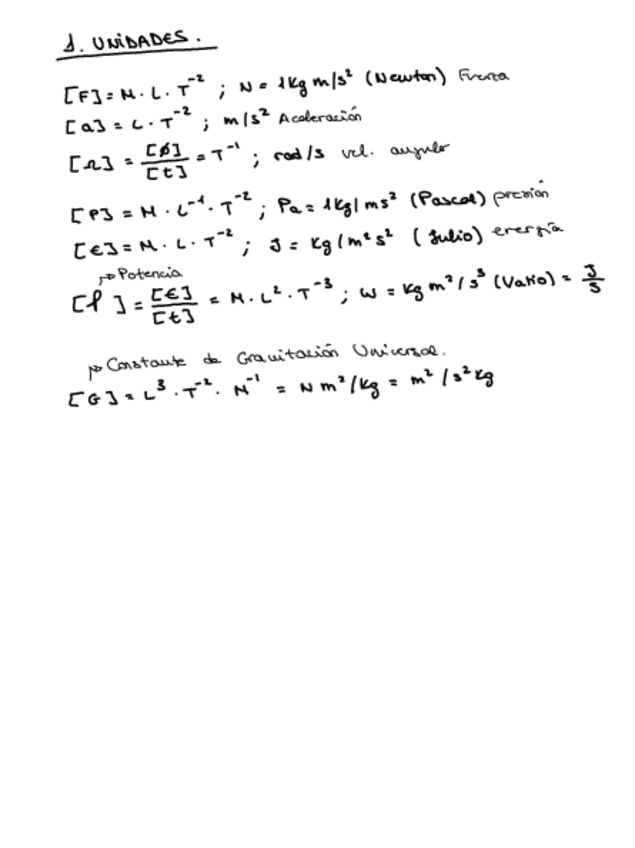 1. UNIDADES.
[F] = M · L · T⁻² ; N = 1 Kg m/s² (Newton) Fuerza
[a] = L · T⁻² ; m/s² Aceleración
[Ω] = [Ø]/[t] = T⁻¹ ; rad/s vel. angular
[P] = M · L⁻¹ · T⁻² ; Pa = 1 Kg/ms² (Pascal) presión
[E] = M · L · T⁻² ; J = Kg/m²s² (Julio) energía
↦ Potencia
[P] = [E]/[t] = M · L² · T⁻³ ; W = Kg m²/s³ (Vatio) = J/s
↦ Constante de Gravitación Universal.
[G] = L³ · T⁻² · M⁻¹ = N m²/Kg = m²/s² Kg